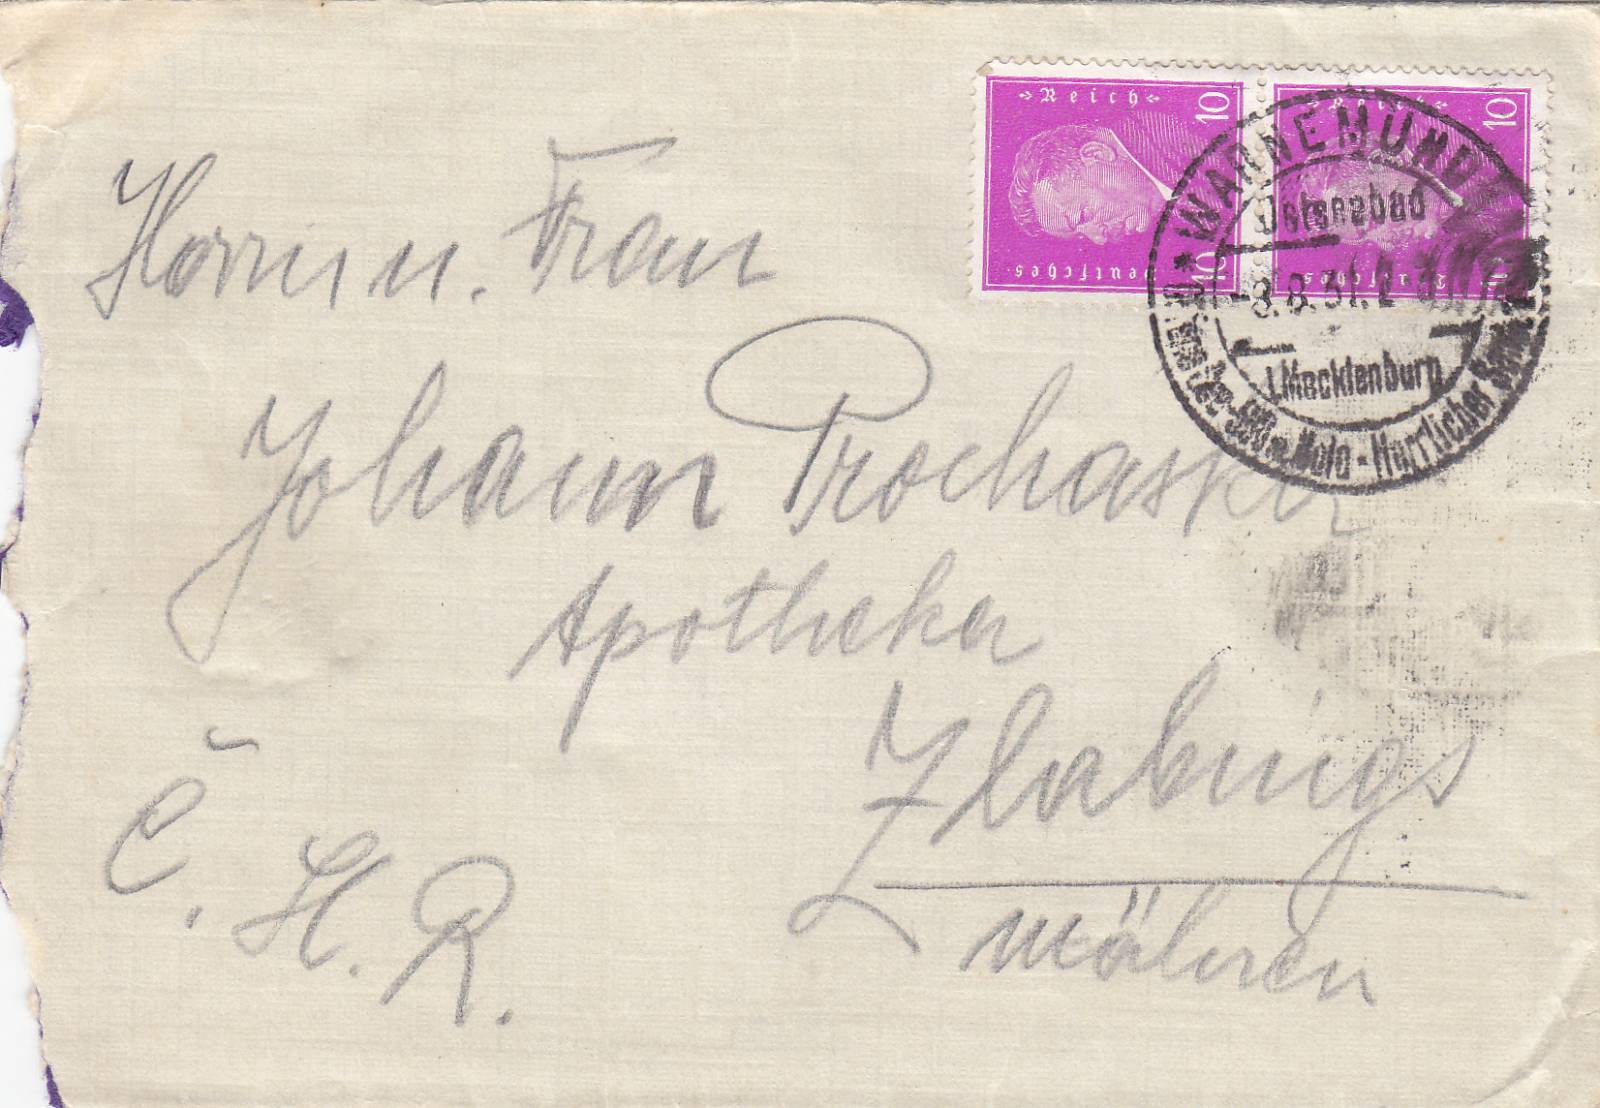 Reich 10
Deutsches 10
Reich 10
Deutsches
WARNEMÜNDE
Ostseebad
8.8.31.
i.Mecklenburg
Herrlicher
Herrn u. Frau
Johann Prochaska
Apotheker
Zlabings
Mähren
Č. S. R.